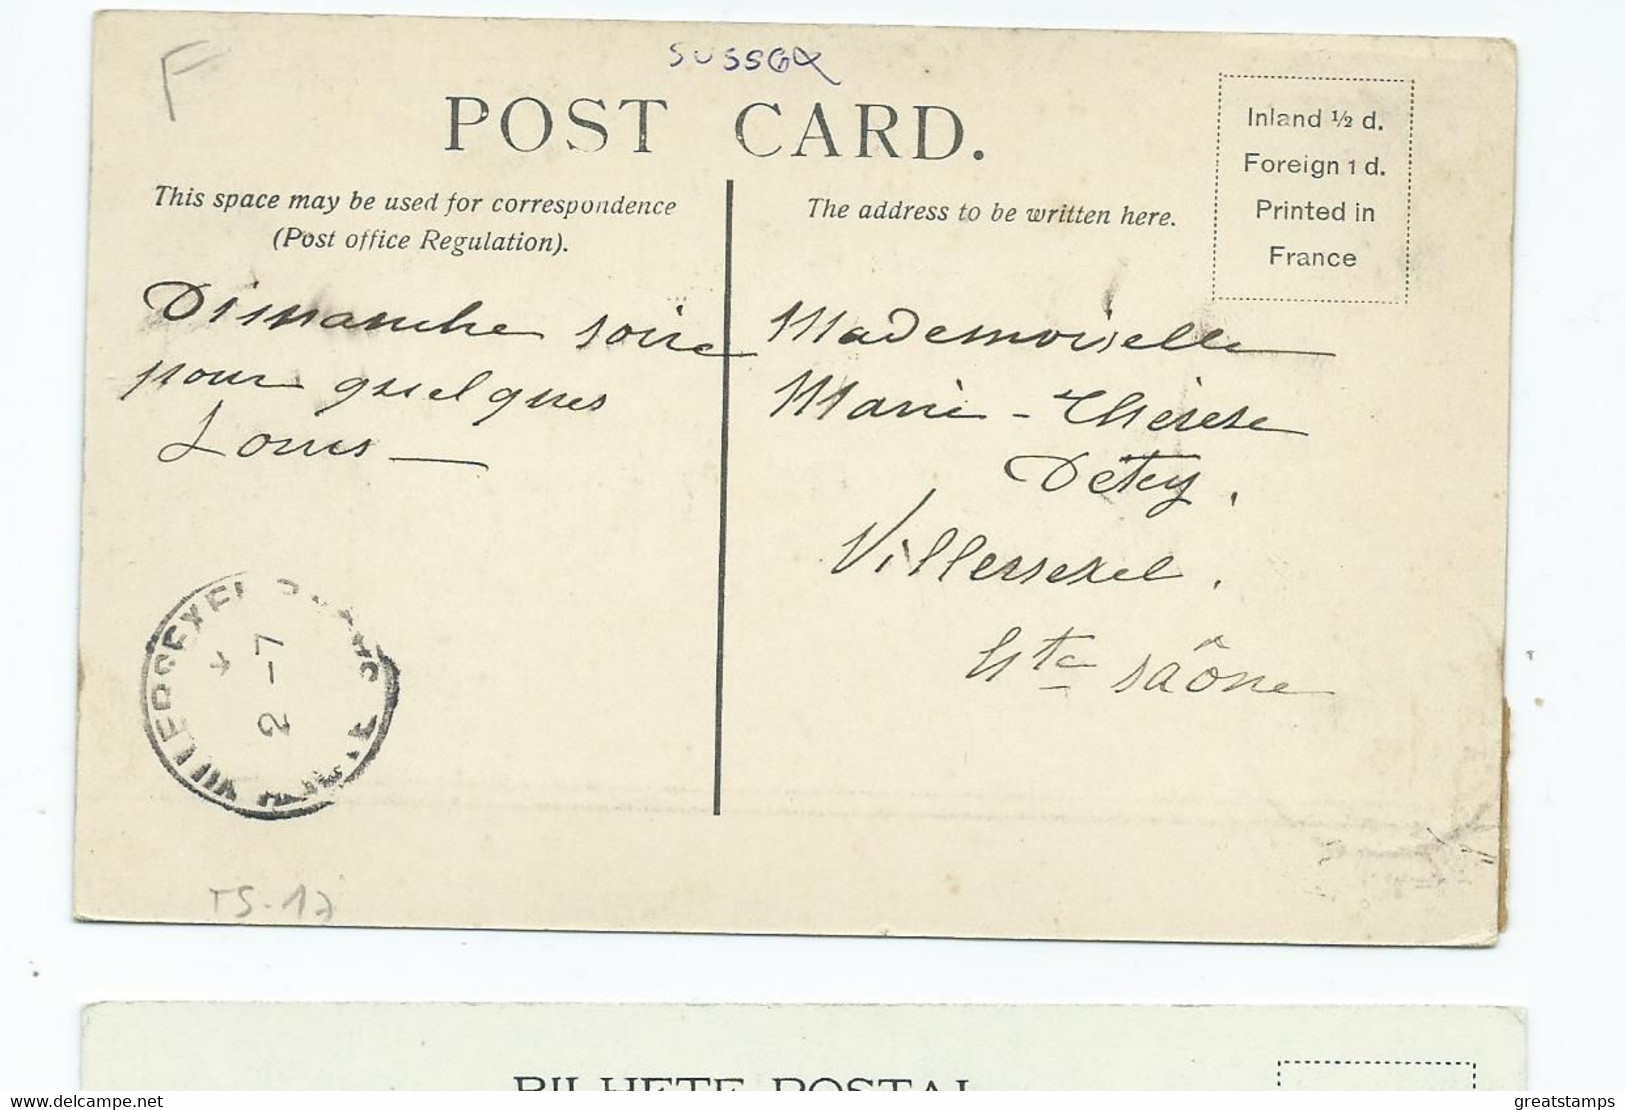 F
SUSSEX
POST CARD.
This space may be used for correspondence
(Post office Regulation).
The address to be written here.
Inland ½ d.
Foreign 1 d.
Printed in
France
Dimanche soire
pour quelques
Louis —
Mademoiselle
Marie-Thérèse
Détey.
Villersexel.
Hte Saône
VILLERSEXEL
2 -7
TS-17
BILHETE POSTAL
greatstamps